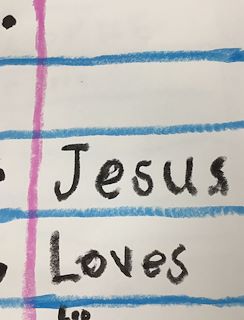 Jesus
Loves